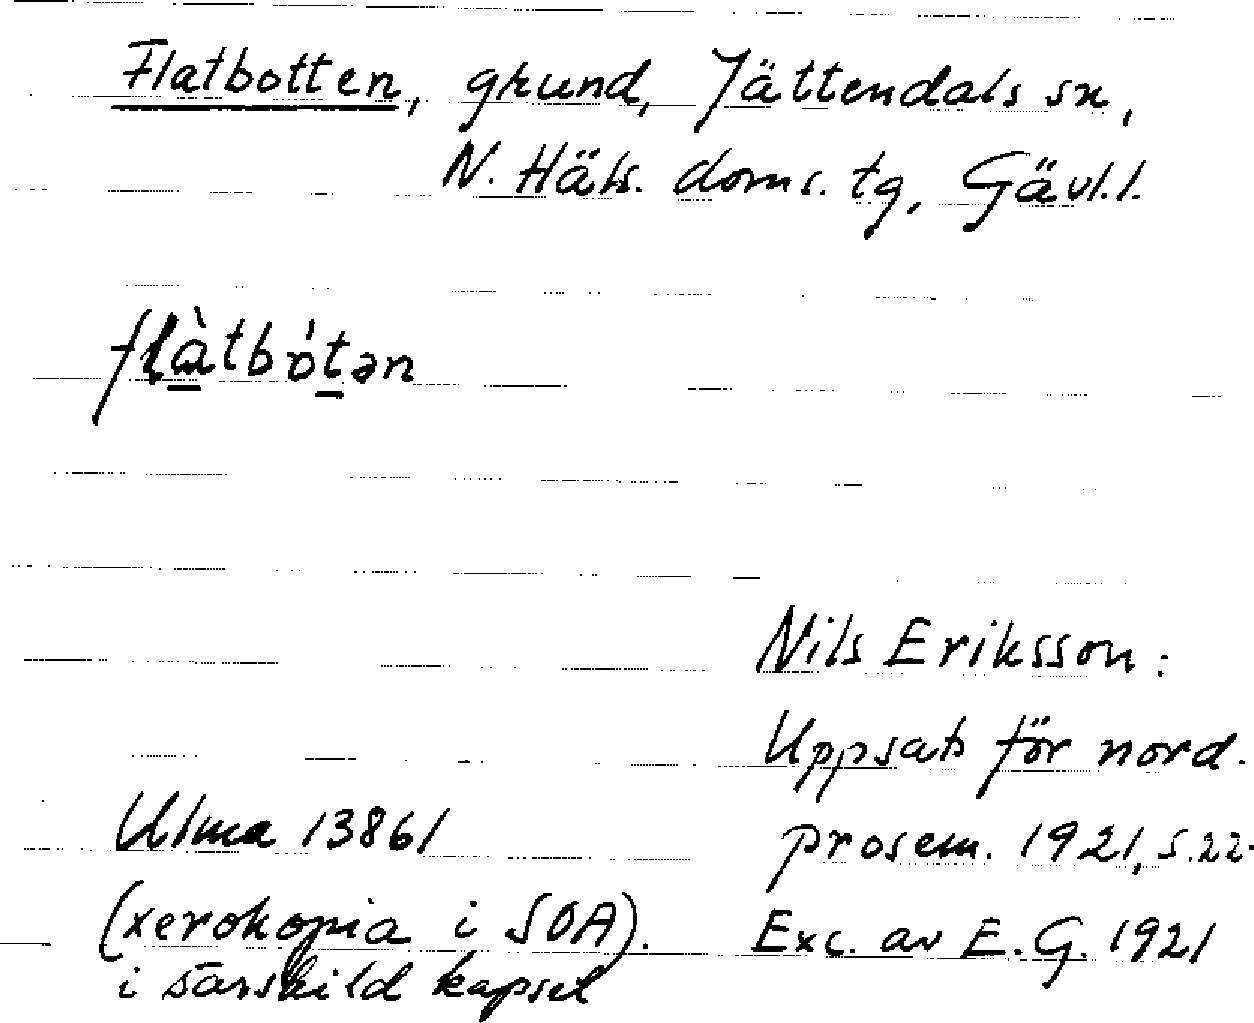 Flatbotten, grund, Jättendals sn,
N. Häls. doms. tg, Gävl. l.
flàtbótən
Nils Eriksson:
Uppsats för nord.
Ulma 13861 prosem. 1921, s. 22.
(xerokopia i SOA). Exc. av E. G. 1921
i särskild kapsel